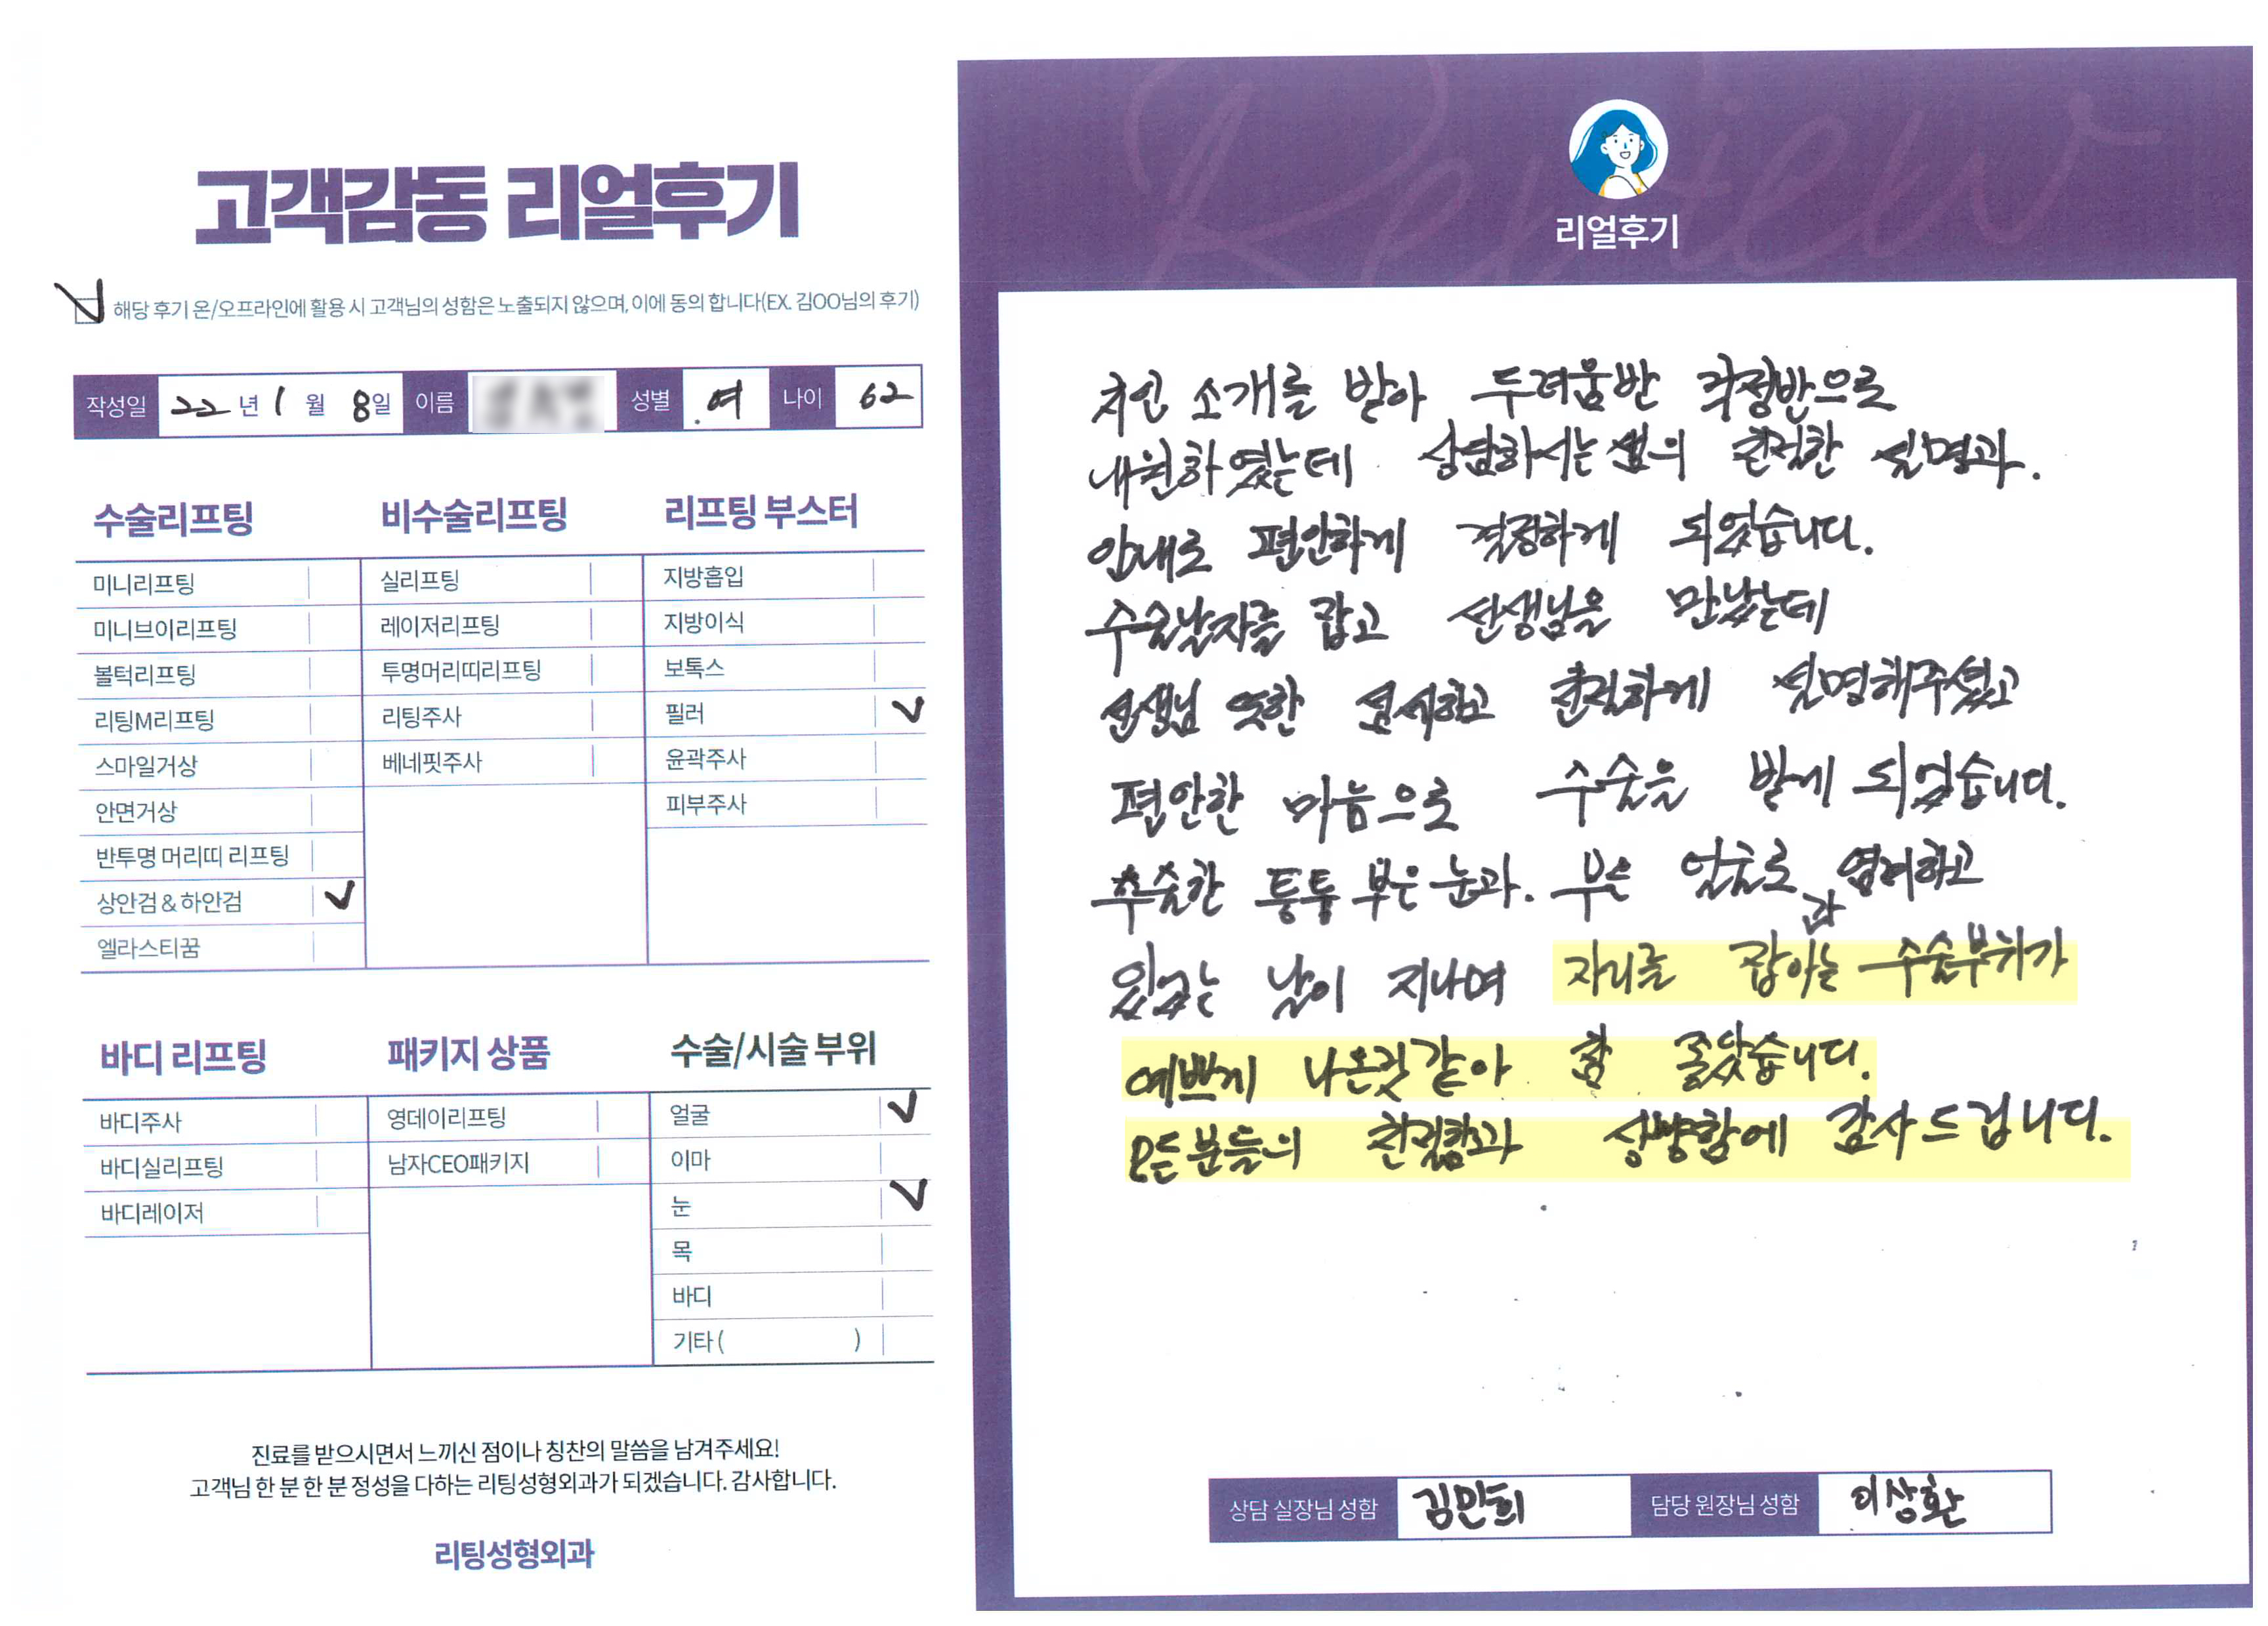 고객감동 리얼후기
해당 후기 온/오프라인에 활용 시 고객님의 성함은 노출되지 않으며, 이에 동의 합니다(EX. 김OO님의 후기)
작성일 22년 1월 8일 이름 성별 여 나이 62
수술리프팅
미니리프팅
미니브이리프팅
볼턱리프팅
리팅M리프팅
스마일거상
안면거상
반투명 머리띠 리프팅
상안검 & 하안검
엘라스티꿈
비수술리프팅
실리프팅
레이저리프팅
투명머리띠리프팅
리팅주사
베네핏주사
리프팅 부스터
지방흡입
지방이식
보톡스
필러
윤곽주사
피부주사
바디 리프팅
바디주사
바디실리프팅
바디레이저
패키지 상품
영데이리프팅
남자CEO패키지
수술/시술 부위
얼굴
이마
눈
목
바디
기타 ( )
진료를 받으시면서 느끼신 점이나 칭찬의 말씀을 남겨주세요!
고객님 한 분 한 분 정성을 다하는 리팅성형외과가 되겠습니다. 감사합니다.
리팅성형외과
Review
리얼후기
지인 소개를 받아 두려움반 걱정반으로
내원하였는데 상담하시는 샘의 친절한 설명과.
안내로 편안하게 결정하게 되었습니다.
수술날자를 잡고 선생님을 만났는데
선생님 또한 섬세하고 친절하게 설명해주셨고
편안한 마음으로 수술을 받게 되었습니다.
수술한 퉁퉁 부은 눈과. 부은 얼굴로 염려하고
있는 날이 지나며 자리를 잡아가는 수술부위가
예쁘게 나온것 같아 참 좋았습니다.
모든분들의 친절함과 상냥함에 감사드립니다.
상담 실장님 성함 김민희 담당 원장님 성함 이상환